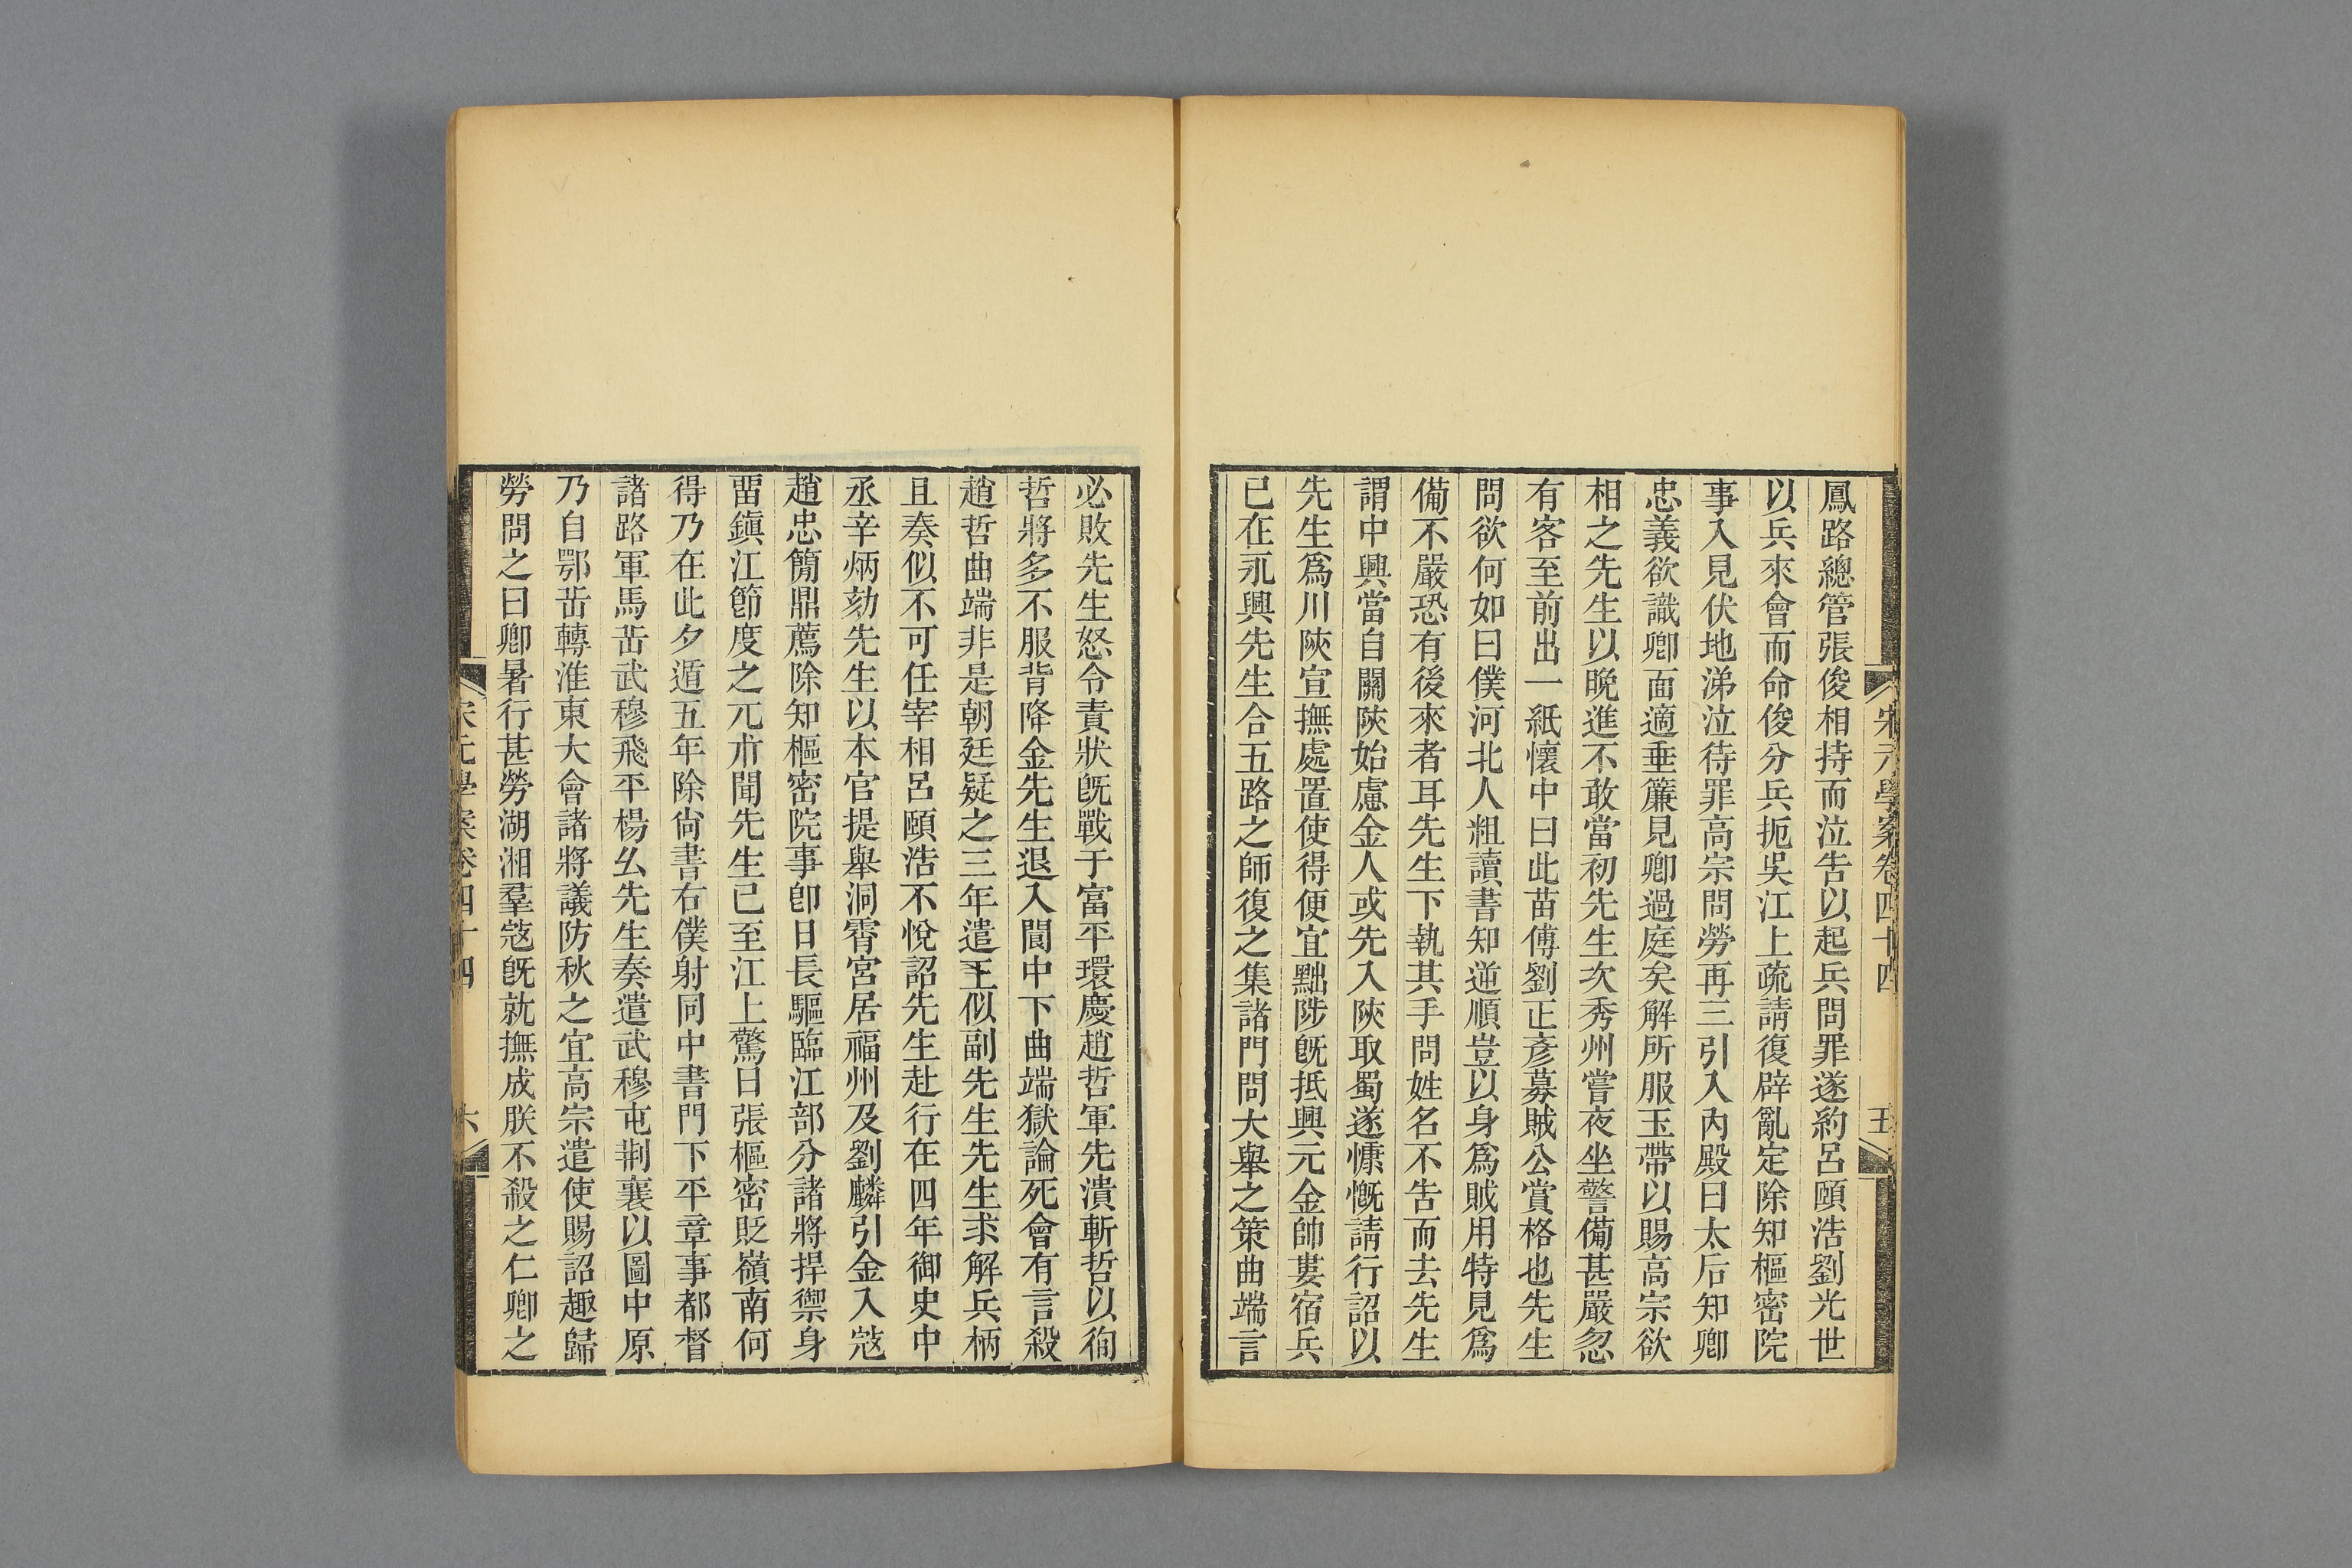 宋元學案卷四十四
五
鳳路總管張俊相持而泣告以起兵問罪遂約呂頤浩劉光世
以兵來會而命俊分兵扼吳江上疏請復辟亂定除知樞密院
事入見伏地涕泣待罪高宗問勞再三引入內殿曰太后知卿
忠義欲識卿面適垂簾見卿過庭矣解所服玉帶以賜高宗欲
相之先生以晩進不敢當初先生次秀州嘗夜坐警備甚嚴忽
有客至前出一紙懷中曰此苗傅劉正彥募賊公賞格也先生
問欲何如曰僕河北人粗讀書知逆順豈以身爲賊用特見爲
備不嚴恐有後來者耳先生下執其手問姓名不告而去先生
謂中興當自關陝始慮金人或先入陝取蜀遂慷慨請行詔以
先生爲川陝宣撫處置使得便宜黜陟旣抵興元金帥婁宿兵
已在永興先生合五路之師復之集諸門問大舉之策曲端言
必敗先生怒令責狀旣戰于富平環慶趙哲軍先潰斬哲以徇
哲將多不服背降金先生退入閬中下曲端獄論死會有言殺
趙哲曲端非是朝廷疑之三年遣王似副先生先生求解兵柄
且奏似不可任宰相呂頤浩不悅詔先生赴行在四年御史中
丞辛炳劾先生以本官提舉洞霄宮居福州及劉麟引金入寇
趙忠簡鼎薦除知樞密院事卽日長驅臨江部分諸將捍禦身
畱鎭江節度之兀朮聞先生已至江上驚曰張樞密貶嶺南何
得乃在此夕遁五年除尙書右僕射同中書門下平章事都督
諸路軍馬岳武穆飛平楊幺先生奏遣武穆屯荆襄以圖中原
乃自鄂岳轉淮東大會諸將議防秋之宜高宗遣使賜詔趣歸
勞問之曰卿暑行甚勞湖湘羣寇旣就撫成朕不殺之仁卿之
宋元學案卷四十四
六